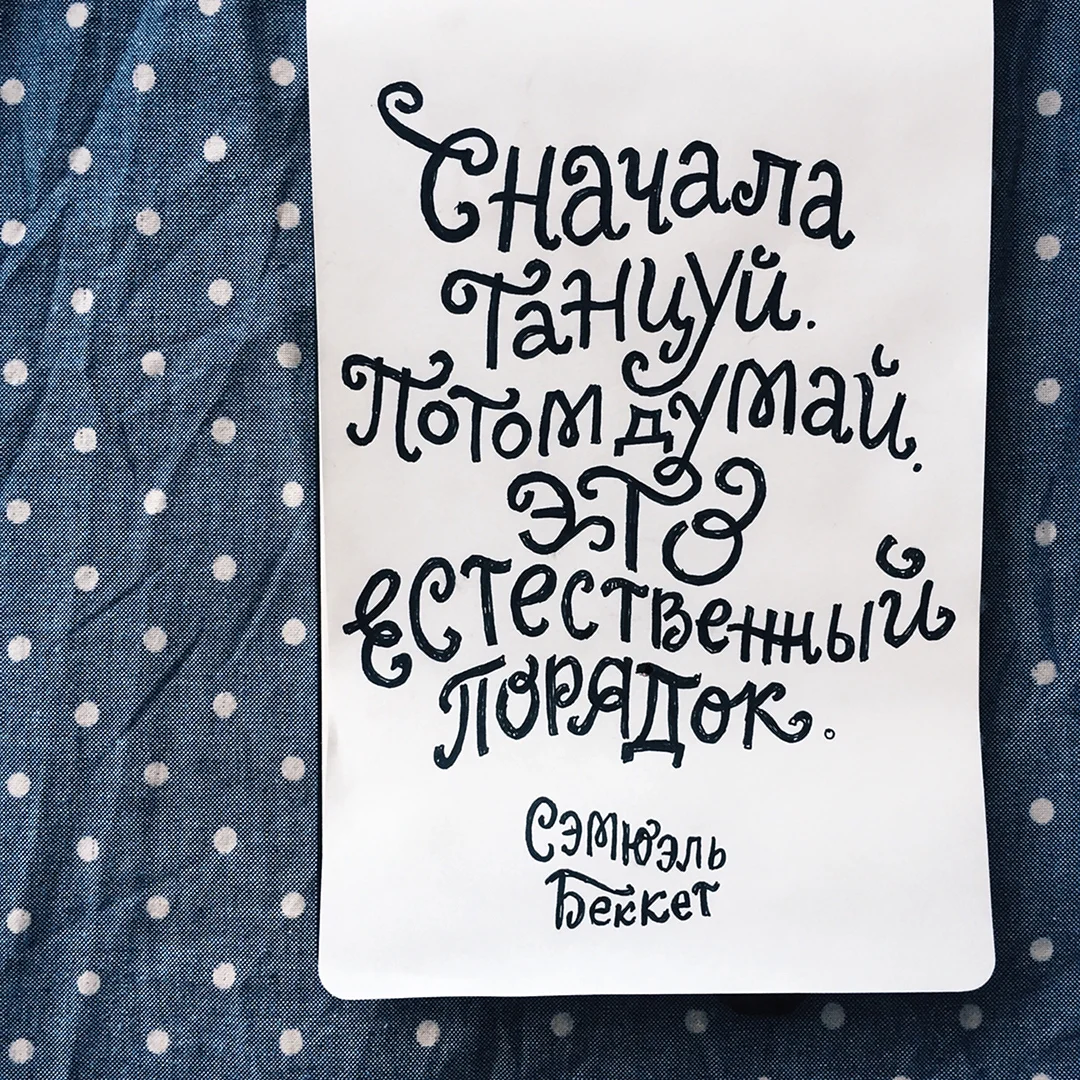 Сначала
танцуй.
Потом думай.
Это
естественный
порядок.
Сэмюэль
Беккет